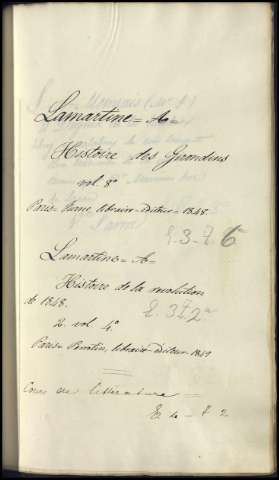 Lamartine = A=
Histoire des Girondins
vol. 8°
Paris- Furne, libraire-éditeur- 1848.
E. 3- F. 6
Lamartine= A=
Histoire de la révolution
de 1848.
2. vol 4°
E. 3 F. 2
Paris- Perrotin, libraire-éditeur- 1849
Cours de littérature =
E 4 - F 2